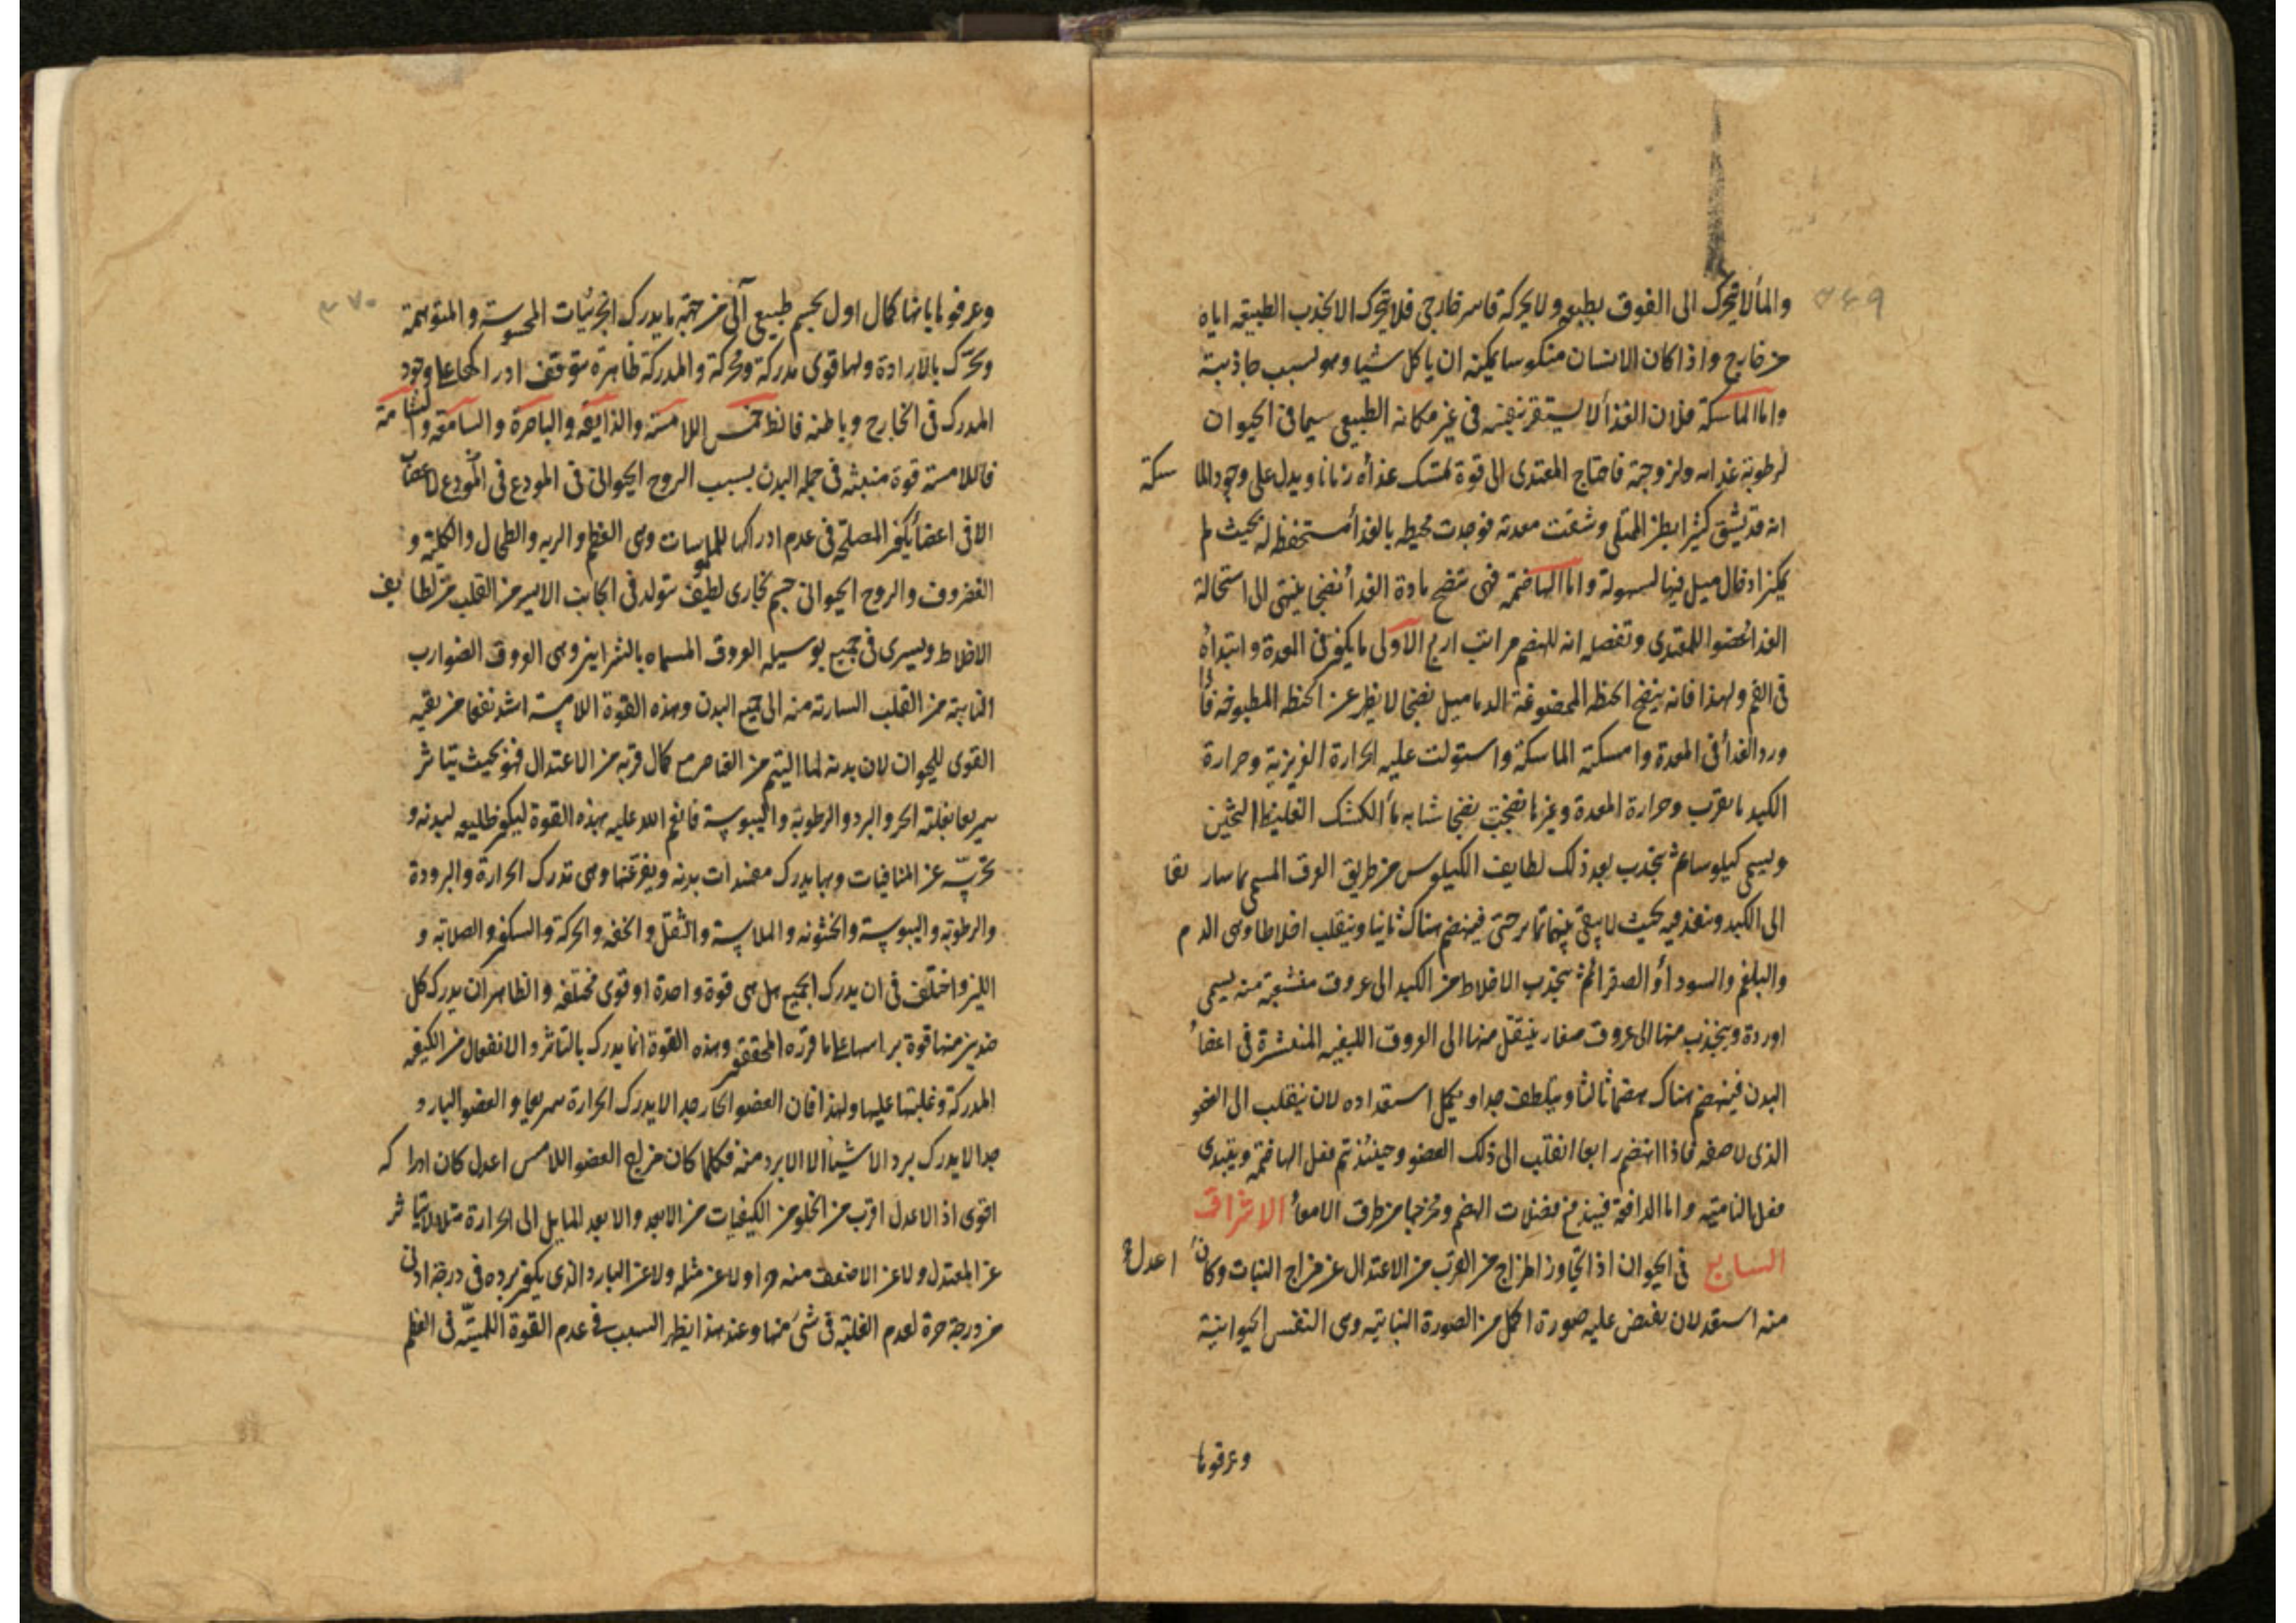 ٣٤٩
والمأ لا يتحرك الى الفوق بطبعه ولا يحركه قاسر خارجى فلا يتحرك الا بجذب الطبيعة اياه
من خارج واذا كان الانسان منكوسا يمكنه ان ياكل شيا وهو بسبب جاذبية
واما الماسكة فلان الغذأ لا يستقر بنفسه فى غير مكانه الطبيعى سيما فى الحيوان
لرطوبة غذائه ولزوجته فاحتاج المغتدى الى قوة تمسك غذاه زمانا ويدل على وجود الماسكة
انه قد يشق كثيرا بطن الممتلى وشقت معدته فوجدت محيطه بالغذأ مستحفظه له بحيث لم
يمكن ادخال ميل فيها لسهولة واما الهاضمة فهى تنضج مادة الغذأ نضجا ينتهى الى استحالة
الغذأ عضوا للمغتدى وتفصله انه للهضم مراتب اربع الاولى ما يكون فى المعدة وابتداؤه
فى الفم ولهذا فانه ينضج الحنطه الممضوغة الدماميل نضجا لا يظهر عن الحنطه المطبوخه فاذا
ورد الغذأ فى المعدة وامسكته الماسكة واستولت عليه الحرارة الغريزية وحرارة
الكبد ما يقرب وحرارة المعدة وغيرها نضجت نضجا شابه مأ الكشك الغليظ الثخين
ويسمى كيلوسا ثم ينجذب بعد ذلك لطايف الكيلوس من طريق العرق المسمى بماساريقا
الى الكبد وينفذ فيه بحيث لا يبقى بينهما تمايز حتى فينهضم هناك ثانيا وينقلب اخلاطا وهى الدم
والبلغم والسودأ والصفرأ ثم ينجذب الاخلاط من الكبد الى عروق منشعبة منه يسمى
اوردة وينجذب منها الى عروق صغار ينتقل منها الى العروق الليفيه المنتشرة فى اعضأ
البدن فينهضم هناك هضما ثالثا ويتلطف جدا ويكمل استعداده لان ينقلب الى العضو
الذى لاصقه فاذا انهضم رابعا انقلب الى ذلك العضو وحينئذ تم فعل الهاضمة ويبتدى
فعل النامية واما الدافعة فيندفع فضلات الهضم ومخرجها من طرق الامعأ الاشراق
السابع فى الحيوان اذا تجاوز المزاج من القرب من الاعتدال عن مزاج النبات وكان اعدل
منه استعد لان يفيض عليه صورة اكمل من الصورة النباتيه وهى النفس الحيوانية
وعرفوها
٣٧٠
وعرفوها بانها كمال اول لجسم طبيعى آلى من جهة ما يدرك الجزئيات المحسوسة والمتوهمة
ويتحرك بالارادة ولها قوى مدركة ومحركة والمدركة ظاهرة يتوقف ادراكها على وجود
المدرك فى الخارج وباطنه فالظ خمس اللامسة والذايقه والباصرة والسامعه والشامة
فاللامسة قوة منبثه فى جمله البدن بسبب الروح الحيوانى فى المودع فى المودع الاعصاب
الا فى اعضأ يكون المصلحة فى عدم ادراكها للملموسات وهى العظم والريه والطحال والكليه و
الغضروف والروح الحيوانى جسم بخارى لطيف يتولد فى الجانب الايسر من القلب من لطايف
الاخلاط ويسرى فى جميع بوسيله العروق المسماه بالشرايين وهى العروق الضوارب
النابتة من القلب السارية منه الى جميع البدن وهذه القوة اللامسة اشد نفعا من بقيه
القوى للحيوان لان بدنه لما اليتم من العناصر مع كمال قربه من الاعتدال فهو بحيث يتاثر
سريعا بغلبة الحر والبرد والرطوبة واليبوسة فانعم الله عليه بهذه القوة ليكون طليعه لبدنه و
تحرسه عن المنافيات وبها يدرك مفسدات بدنه ويفر عنها وهى تدرك الحرارة والبرودة
والرطوبه واليبوسة والخشونه والملاسة والثقل والخفه والحركة والسكون والصلابه و
اللين واختلف فى ان يدرك الجميع هل هى قوة واحدة او قوى مختلفه والظاهر ان يدرك كل
ضدين منها قوة براسها على ما قرره المحققون وهذه القوة انما يدرك بالتاثر والانفعال من الكيفيه
المدركة وغلبتها عليها ولهذا فان العضو الحار جدا لا يدرك الحرارة سريعا والعضو البارد
جدا لا يدرك برد الاشيأ الا الابرد منه فكلما كان مزاج العضو اللامس اعدل كان ادراكه
اقوى اذ الاعدل اقرب من الخلو من الكيفيات من الابعد والابعد المايل الى الحرارة مثلا لا يتاثر
عن المعتدل ولا عن الاضعف منه حرا ولا عن مثله ولا عن البارد الذى يكون برده فى درجة ادنى
من درجة حرة لعدم الغلبة فى شئ منها وعند هذا يظهر السبب فى عدم القوة اللمسية فى العظم